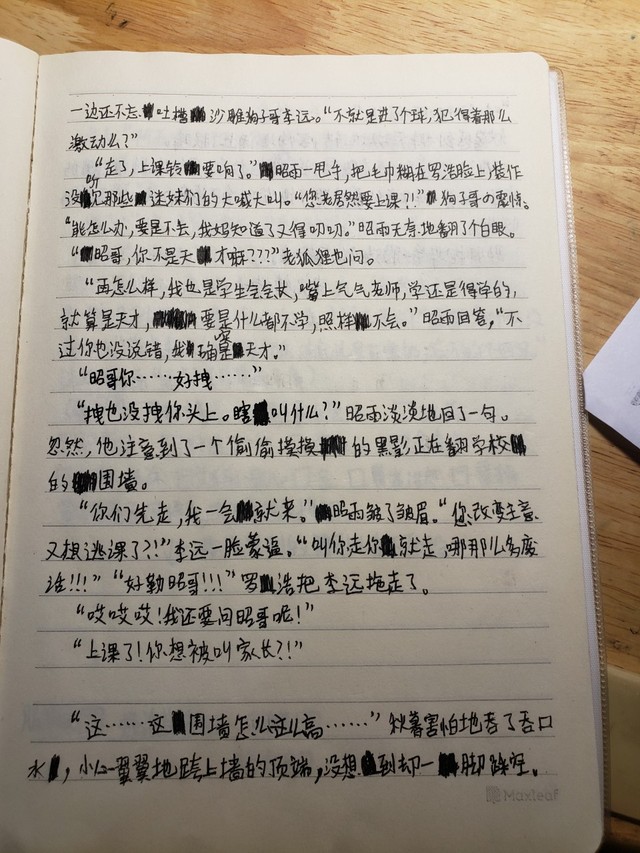 一边还不忘吐槽沙雕狗子哥李远。“不就是进了个球，犯得着那么
激动么？”
“走了，上课铃要响了。”昭雨一甩手，把毛巾糊在罗浩脸上，装作
没听见那些迷妹们的大喊大叫。“您老居然要上课？！”狗子哥の震惊。
“能怎么办，要是不去，我妈知道了又得叨叨。”昭雨无奈地翻了个白眼。
“昭哥，你不是天才嘛？？？”老狐狸也问。
“再怎么样，我也是学生会会长，嘴上气气老师，学还是得学的，
就算是天才，要是什么都不学，照样不会。”昭雨回答，“不
过你也没说错，我确实是天才。”
“昭哥你……好拽……”
“拽也没拽你头上。瞎叫什么？”昭雨淡淡地回了一句。
忽然，他注意到了一个偷偷摸摸的黑影正在翻学校
的围墙。
“你们先走，我一会就来。”昭雨皱了皱眉。“您改变主意
又想逃课了？！”李远一脸蒙逼。“叫你走你就走，哪那么多废
话！！！”“好勒昭哥！！！”罗浩把李远拖走了。
“哎哎哎！我还要问昭哥呢！”
“上课了！你想被叫家长？！”
“这……这围墙怎么这么高……”秋暮害怕地吞了吞口
水，小心翼翼地跨上墙的顶端，没想到却一脚踩空。
Maxleaf